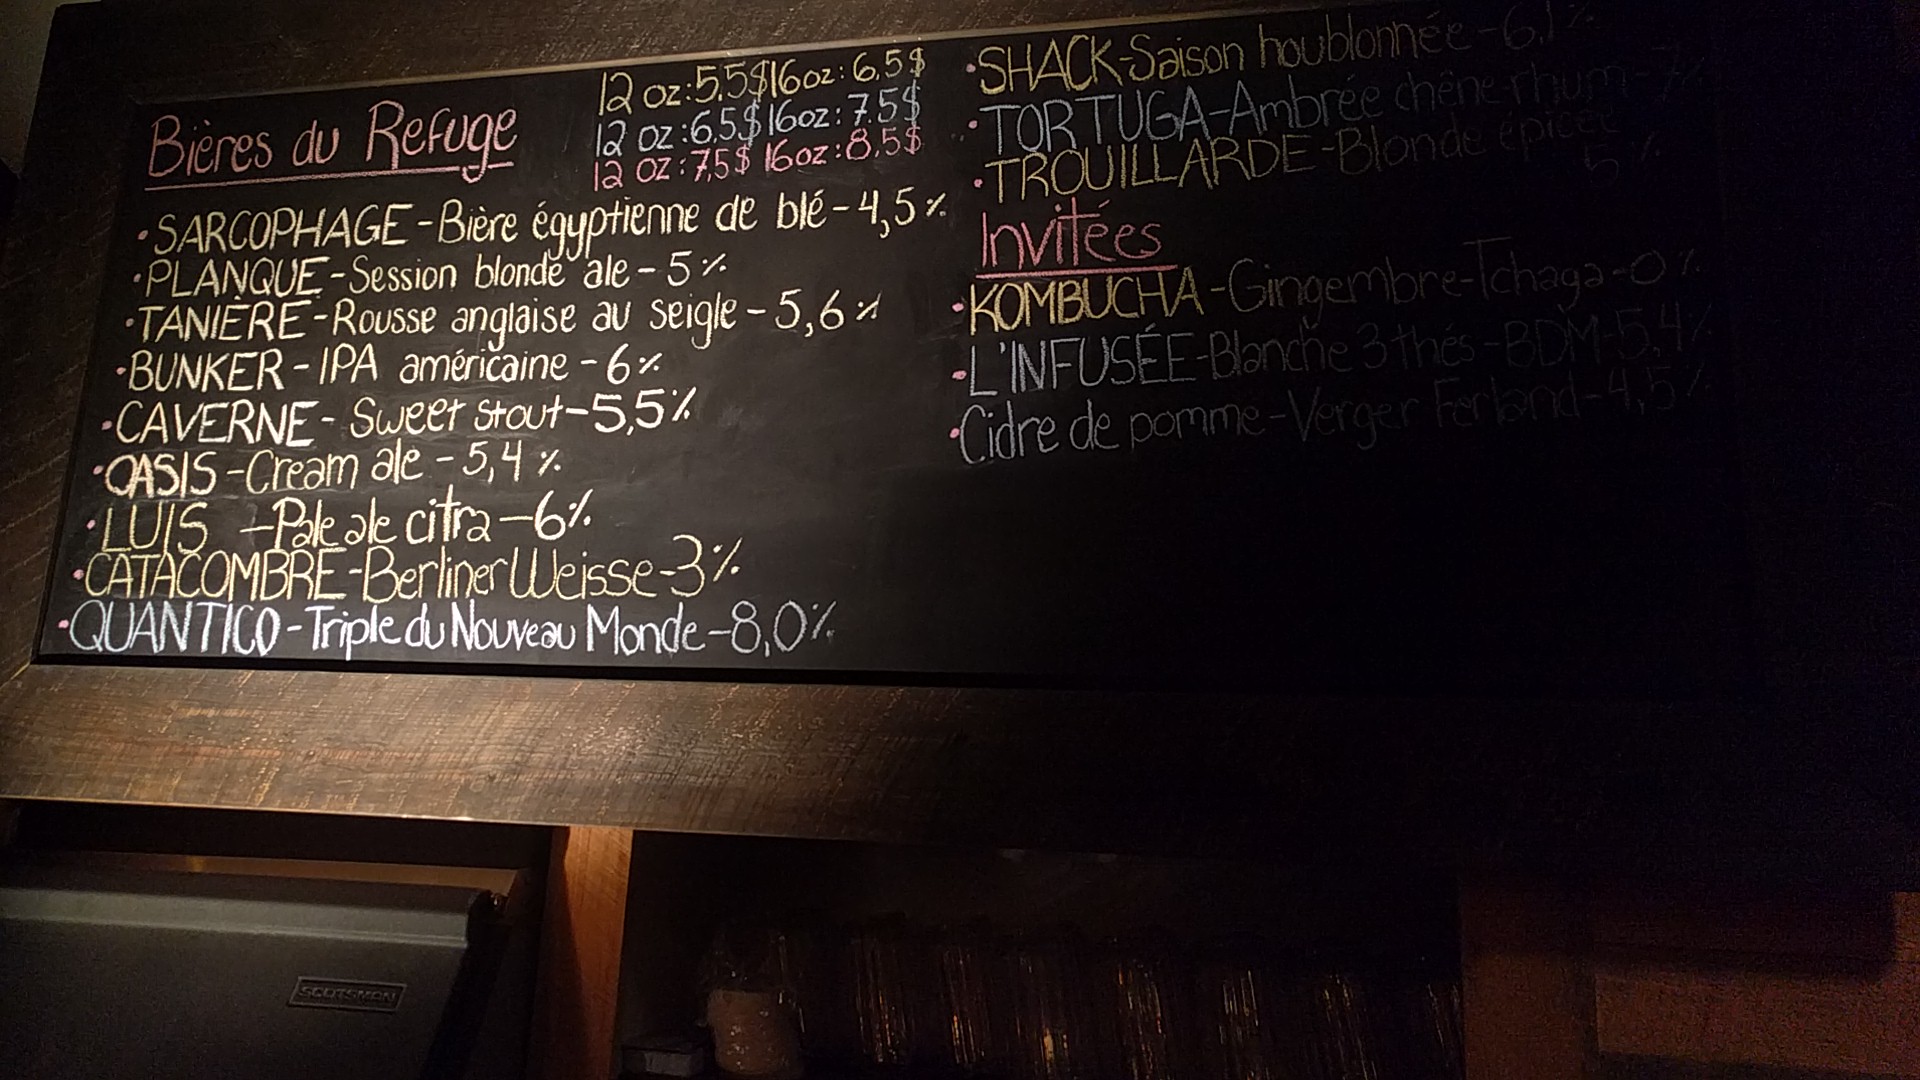 Bières du Refuge
12 oz:5,5$ 16oz: 6,5$
12 oz:6.5$ 16oz: 7.5$
12 oz:7,5$ 16oz:8,5$
•SARCOPHAGE-Bière égyptienne de blé-4,5%
•PLANQUE-Session blonde ale-5%
•TANIÈRE-Rousse anglaise au seigle-5,6%
•BUNKER-IPA américaine-6%
•CAVERNE-Sweet stout-5,5%
•OASIS-Cream ale-5,4%
•LUIS -Pale ale citra-6%
•CATACOMBRE-Berliner Weisse-3%
•QUANTICO-Triple du Nouveau Monde-8,0%
•SHACK-Saison houblonnée-6,1%
•TORTUGA-Ambrée chêne-rhum-7%
•TROUILLARDE-Blonde épicée
5%
Invitées
•KOMBUCHA-Gingembre-Tchaga-0%
•L'INFUSÉE-Blanche 3 thés-BDM-5,4%
•Cidre de pomme-Verger Ferland-4,5%
SCOTSMAN